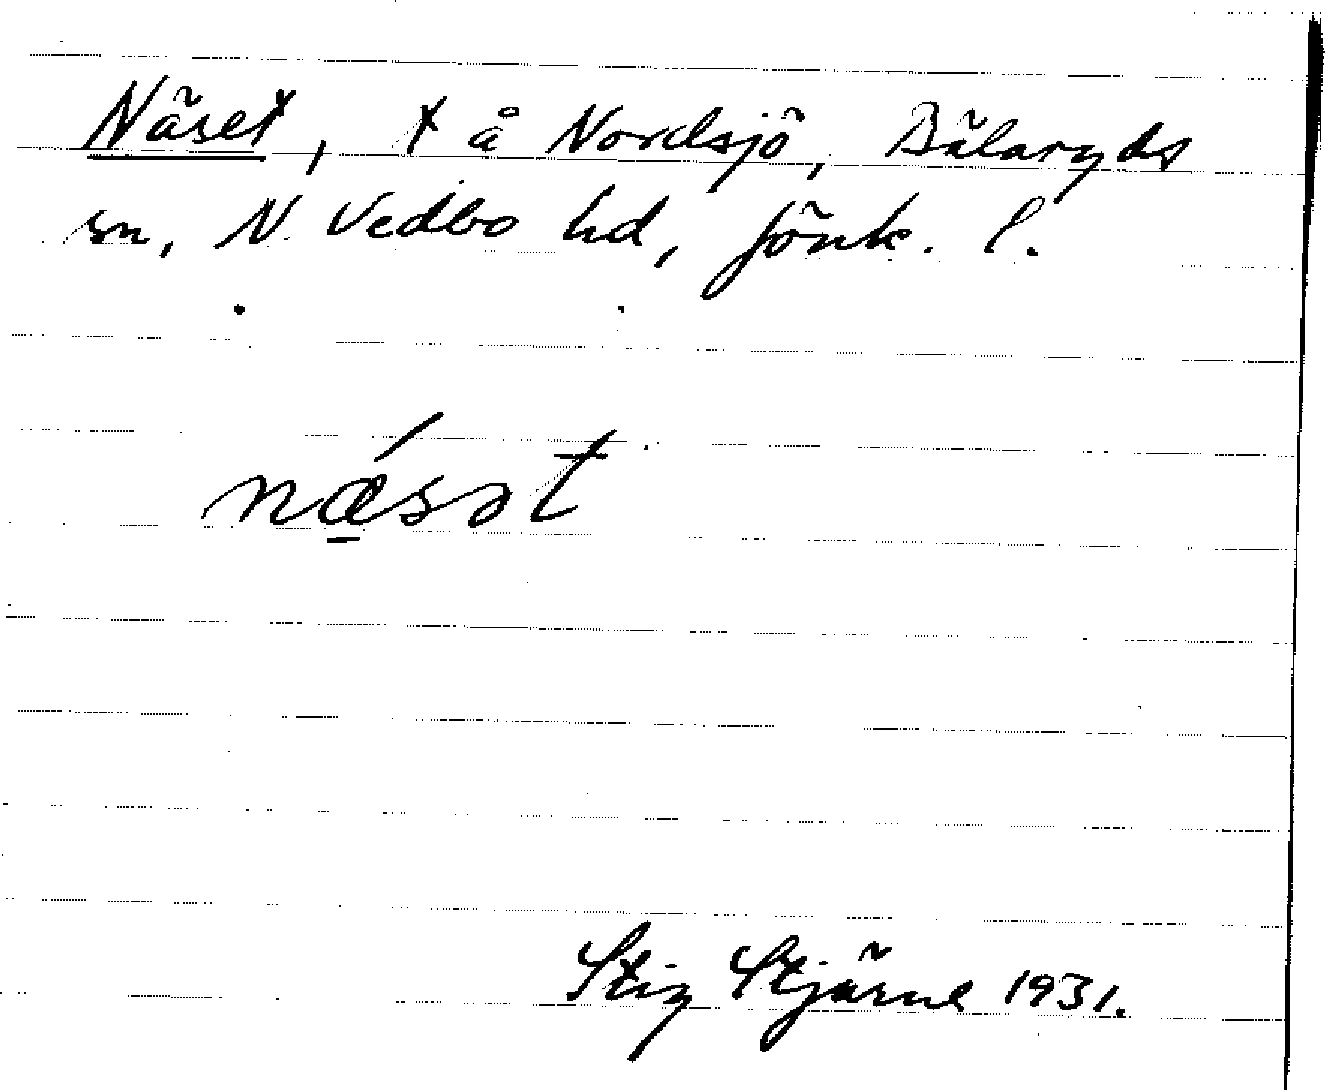 Näset, t å Nordsjö, Bälaryds
sn, N. Vedbo hd, Jönk. l.
nǽ̱sət
Stig Stjärne 1931.